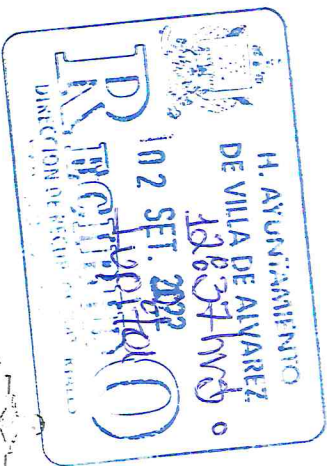 H. AYUNTAMIENTO
DE VILLA DE ALVAREZ
12:37 hrs.
02 SET. 2022
RECIBIDO
Lupita
DIRECCION DE